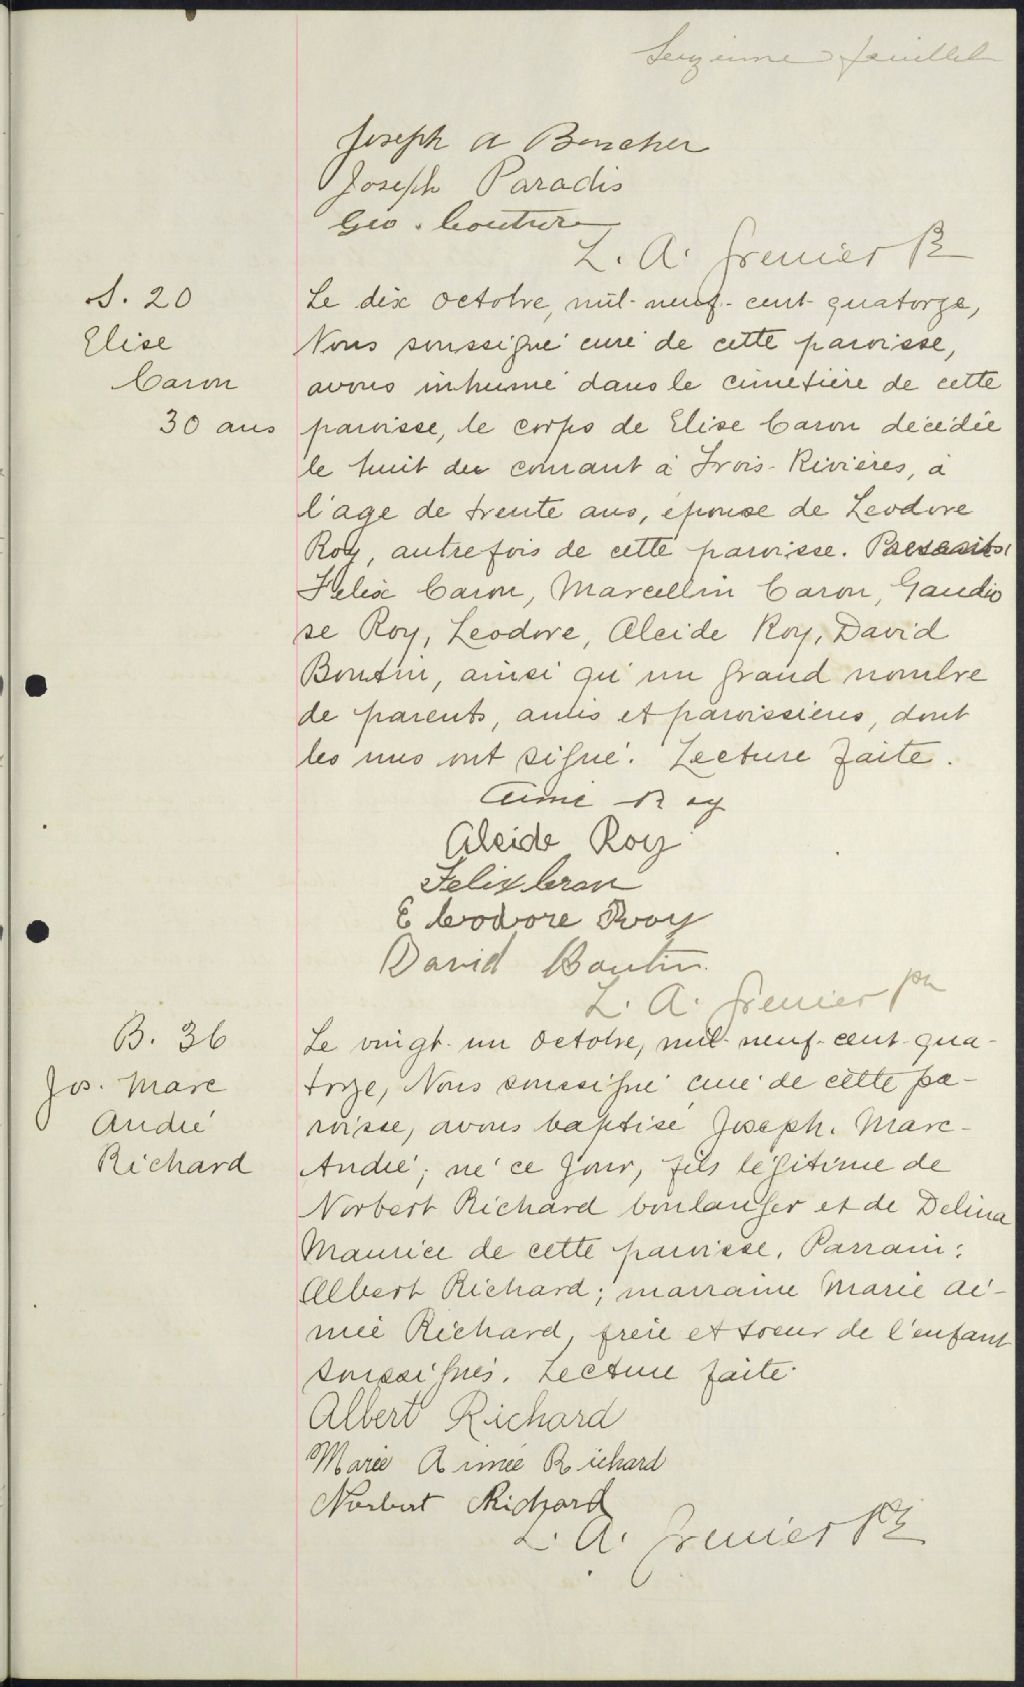 Seizième feuillet
Joseph A Boucher
Joseph Paradis
Geo. Couture
L. A. Grenier Ptre
S. 20
Elise
Caron
30 ans
Le dix octobre, mil-neuf-cent-quatorze,
Nous soussigné curé de cette paroisse,
avons inhumé dans le cimetière de cette
paroisse, le corps de Elise Caron décédée
le huit du courant à Trois-Rivières, à
l'age de trente ans, épouse de Leodore
Roy, autrefois de cette paroisse. Présents:
Felix Caron, Marcellin Caron, Gaudio
se Roy, Leodore, Alcide Roy, David
Boutin, ainsi qu'un grand nombre
de parents, amis et paroissiens, dont
les uns ont signé. Lecture faite.
Aimé Roy
Alcide Roy
Felix Caron
E Leodore Roy
David Boutin
L. A. Grenier ptre
B. 36
Jos. Marc
André
Richard
Le vingt-un octobre, mil-neuf-cent-qua-
torze, Nous soussigné curé de cette pa-
roisse, avons baptisé Joseph. Marc-
André, né ce jour, fils légitime de
Norbert Richard boulanger et de Delina
Maurice de cette paroisse. Parrain:
Albert Richard; marraine Marie Ai-
mée Richard, frère et soeur de l'enfant
soussignés. Lecture faite.
Albert Richard
Marie Aimée Richard
Norbert Richard
L. A. Grenier Ptre